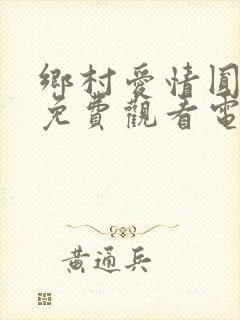 鄉村愛情圓
免費觀看電
黃通兵